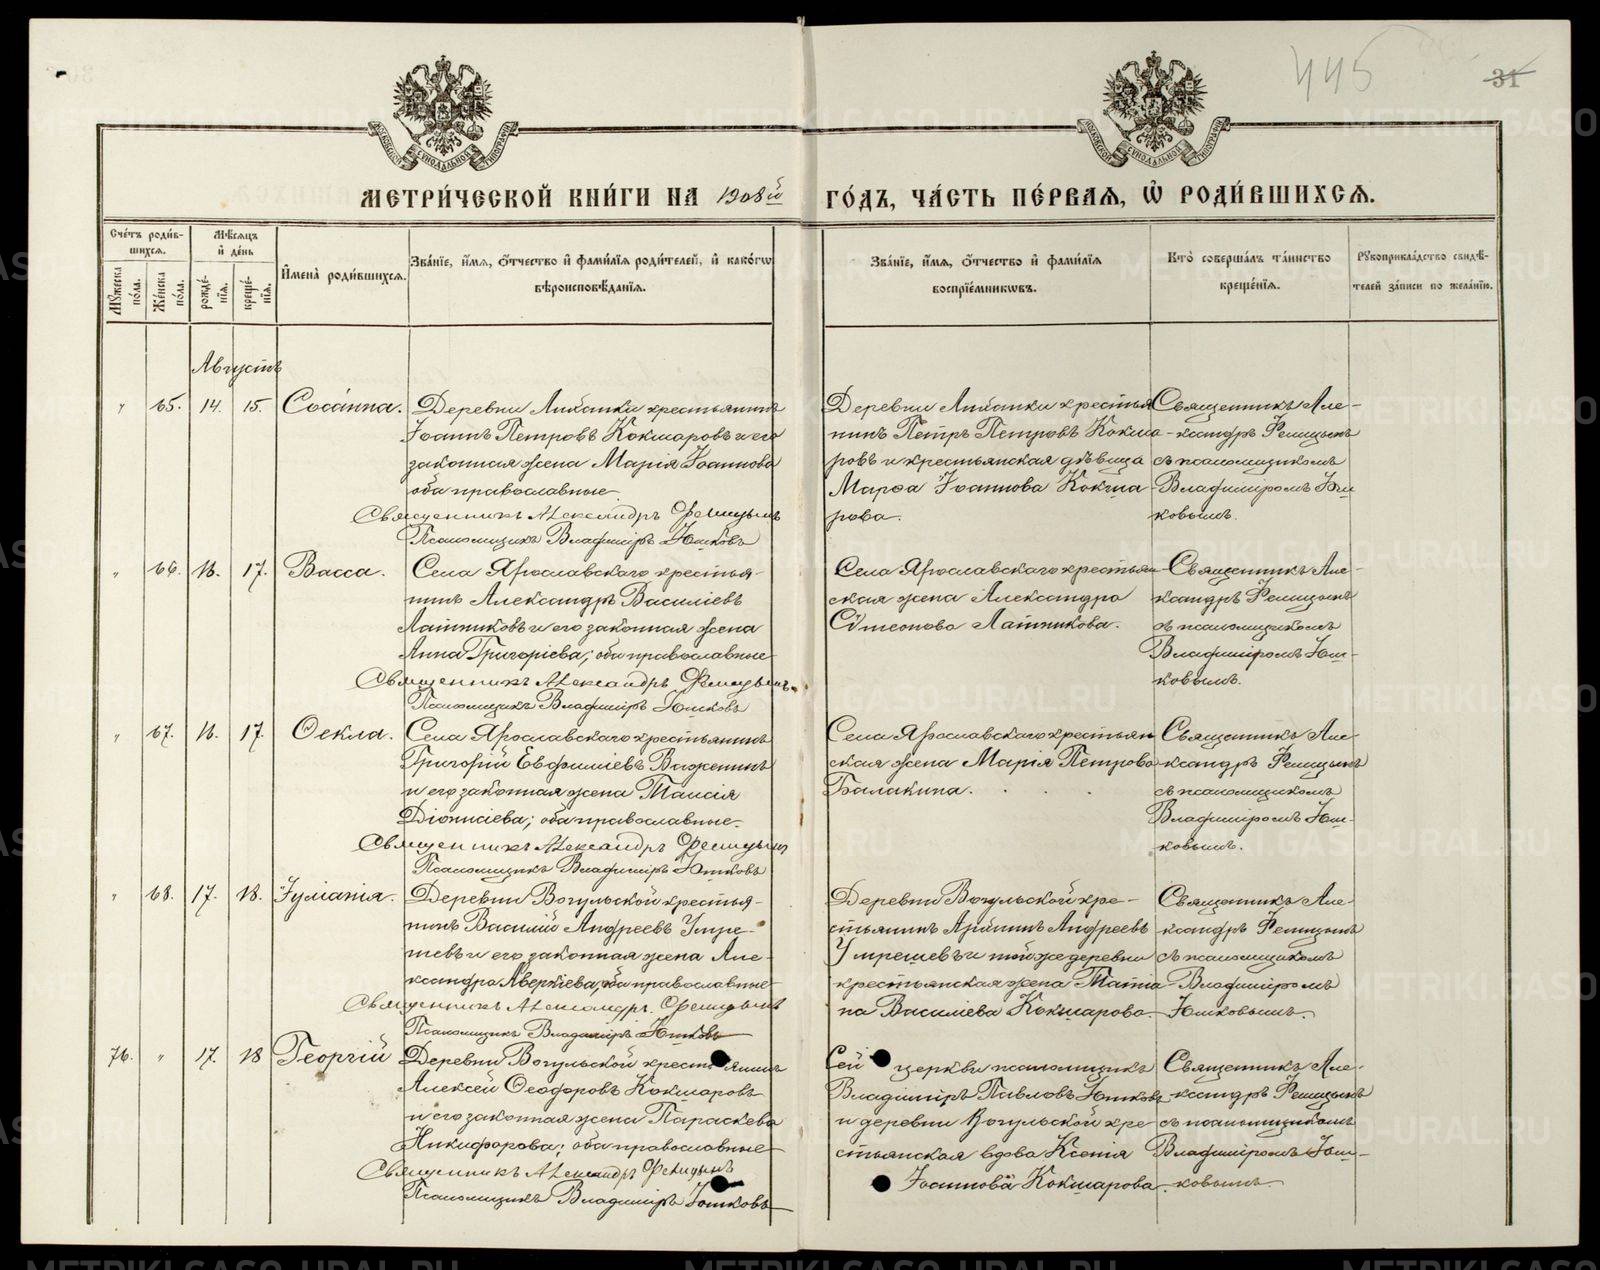 445
31
МОСКОВСКОЙ СѴНОДАЛЬНОЙ ТИПОГРАФІИ
МОСКОВСКОЙ СѴНОДАЛЬНОЙ ТИПОГРАФІИ
МЕТРИ́ЧЕСКОЙ КНИ́ГИ НА 1908й ГО́ДЪ, ЧА́СТЬ ПЕ́РВАЯ, Ѿ РОДИ́ВШИХСѦ.
Сче́тъ роди́в-
шихсѧ.
Мѣ́сяцъ
и҆ де́нь
Мꙋ́жеска по́ла.
Же́нска по́ла.
рожде́-
нїѧ.
креще́-
нїѧ.
И҆мена̀ роди́вшихсѧ.
Зва́нїе, и҆́мѧ, ѻ҆́тчество и҆ фами́лїѧ роди́телей, и҆ како́гѡ
вѣроисповѣ́данїѧ.
Зва́нїе, и҆́мѧ, ѻ҆́тчество и҆ фами́лїѧ
воспрїе́мникѡвъ.
Кто̀ соверша́лъ та́инство
креще́нїѧ.
Рꙋкоприкла́дство свидѣ́-
телей за́писи по жела́нїю.
Августъ
" 65. 14. 15. Соса́нна.
Деревни Лиханки крестьянинъ
Іоаннъ Петровъ Кокшаровъ и его
законная жена Марія Іоаннова
оба православные
Священникъ Александръ Фелицынъ
Псаломщикъ Владиміръ Юшковъ
Деревни Лиханки крестья
нинъ Петръ Петровъ Кокша
ровъ и крестьянская дѣвица
Марѳа Іоаннова Кокша
рова.
Священникъ Але-
ксандръ Фелицынъ
съ псаломщикомъ
Владиміромъ Юш
ковымъ.
" 66. 16. 17. Васса.
Села Ярославскаго крестья-
нинъ Александръ Василіевъ
Латниковъ и его законная жена
Анна Григоріева; оба православные
Священникъ Александръ Фелицынъ
Псаломщикъ Владиміръ Юшковъ
Села Ярославскаго крестьян
ская жена Александра
Сѵмеонова Латникова.
Священникъ Але-
ксандръ Фелицынъ
съ псаломщикомъ
Владиміромъ Юш-
ковымъ.
" 67. 16. 17. Ѳекла.
Села Ярославскаго крестьянинъ
Григорій Евфиміевъ Важенинъ
и его законная жена Таисія
Діонисіева; оба православные.
Священникъ Александръ Фелицынъ
Псаломщикъ Владиміръ Юшковъ
Села Ярославскаго крестьян
ская жена Марія Петрова
Балакина.
Священникъ Але-
ксандръ Фелицынъ
съ псаломщикомъ
Владиміромъ Юш-
ковымъ.
" 68. 17. 18. Іуліанія.
Деревни Вогульской крестья-
нинъ Василій Андреевъ Упре-
шевъ и его законная жена Але-
ксандра Аверкіева; оба православные
Священникъ Александръ Фелицынъ
Псаломщикъ Владиміръ Юшковъ
Деревни Вогульской кре-
стьянинъ Андреевъ
и той же деревни
крестьянская жена Татіа
на Василіева Кокшарова.
Священникъ Але-
ксандръ Фелицынъ
съ псаломщикомъ
Владиміромъ
Юшковымъ.
76. " 17. 18 Георгій
Деревни Вогульской крестьянинъ
Алексей Ѳеодоровъ Кокшаровъ
и его законная жена Параскева
Никифорова; оба православные
Священникъ Александръ Фелицынъ
Псаломщикъ Владиміръ Юшковъ
Сей церкви псаломщикъ
Владиміръ Павловъ Юшковъ
и деревни Вогульской кре
стьянская вдова Ксенія
Іоаннова Кокшарова.
Священникъ Але-
ксандръ Фелицынъ
съ псаломщикомъ
Владиміромъ Юш-
ковымъ.
METRIKI.GASO-URAL.RU